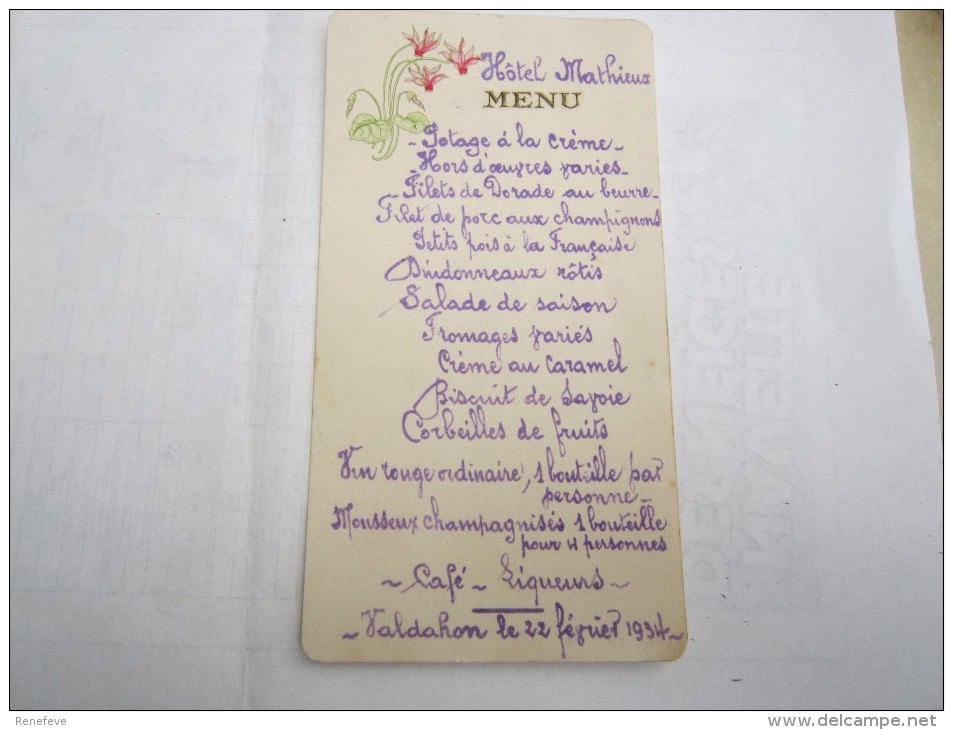 Hôtel Mathieux
MENU
- Potage á la crème -
- Hors d'œuvres varies -
- Filets de Dorade au beurre -
Filet de porc aux champignons
Petits pois à la Française
Dindonneaux rôtis
Salade de saison
Fromages variés
Crème au Caramel
Biscuit de Savoie
Corbeilles de fruits
Vin rouge ordinaire, 1 bouteille par
personne -
Mousseux champagnisés 1 bouteille
pour 4 personnes
~ Café ~ Liqueurs ~
~ Valdahon le 22 février 1934 ~
Renefeve
www.delcampe.net